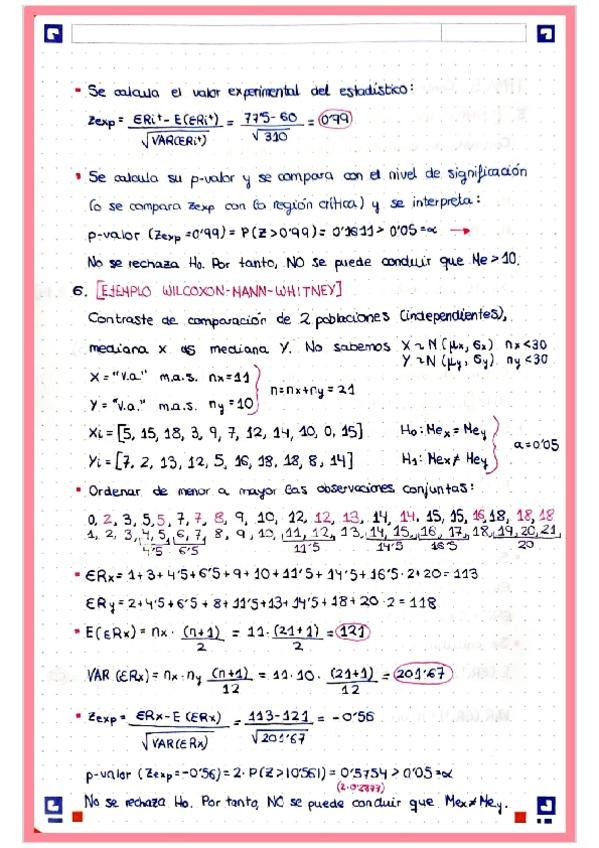 • Se calcula el valor experimental del estadístico:
Zexp = ΣRi⁺ - E(ΣRi⁺) / √VAR(ΣRi⁺) = 77'5 - 60 / √310 = 0'99
• Se calcula su p-valor y se compara con el nivel de significación
(o se compara Zexp con la región crítica) y se interpreta:
p-valor (Zexp = 0'99) = P(Z > 0'99) = 0'1611 > 0'05 = α →
No se rechaza H₀. Por tanto, NO se puede concluir que Me > 10.
6. [EJEMPLO WILCOXON-MANN-WHITNEY]
Contraste de comparación de 2 poblaciones (independientes),
mediana X vs mediana Y. No sabemos X ~ N (μx, σx) nx < 30
Y ~ N (μy, σy) ny < 30
X = "v.a." m.a.s. nx = 11
n = nx + ny = 21
Y = "v.a." m.a.s. ny = 10
Xi = [5, 15, 18, 3, 9, 7, 12, 14, 10, 0, 15] H₀: Mex = Mey
a = 0'05
Yi = [7, 2, 13, 12, 5, 16, 18, 18, 8, 14] H₁: Mex ≠ Mey
• Ordenar de menor a mayor las observaciones conjuntas:
0, 2, 3, 5, 5, 7, 7, 8, 9, 10, 12, 12, 13, 14, 14, 15, 15, 16, 18, 18, 18
1, 2, 3, 4, 5, 6, 7, 8, 9, 10, 11, 12, 13, 14, 15, 16, 17, 18, 19, 20, 21,
4'5 6'5 11'5 14'5 16'5 20
• ΣRx = 1 + 3 + 4'5 + 6'5 + 9 + 10 + 11'5 + 14'5 + 16'5 · 2 + 20 = 113
ΣRy = 2 + 4'5 + 6'5 + 8 + 11'5 + 13 + 14'5 + 18 + 20 · 2 = 118
• E(ΣRx) = nx · (n+1) / 2 = 11 · (21+1) / 2 = 121
VAR (ΣRx) = nx · ny (n+1) / 12 = 11 · 10 · (21+1) / 12 = 201'67
• Zexp = ΣRx - E (ΣRx) / √VAR(ΣRx) = 113 - 121 / √201'67 = - 0'56
p-valor (Zexp = -0'56) = 2 · P(Z > |0'56|) = 0'5754 > 0'05 = α
(2·0'2877)
No se rechaza H₀. Por tanto, NO se puede concluir que Mex ≠ Mey.